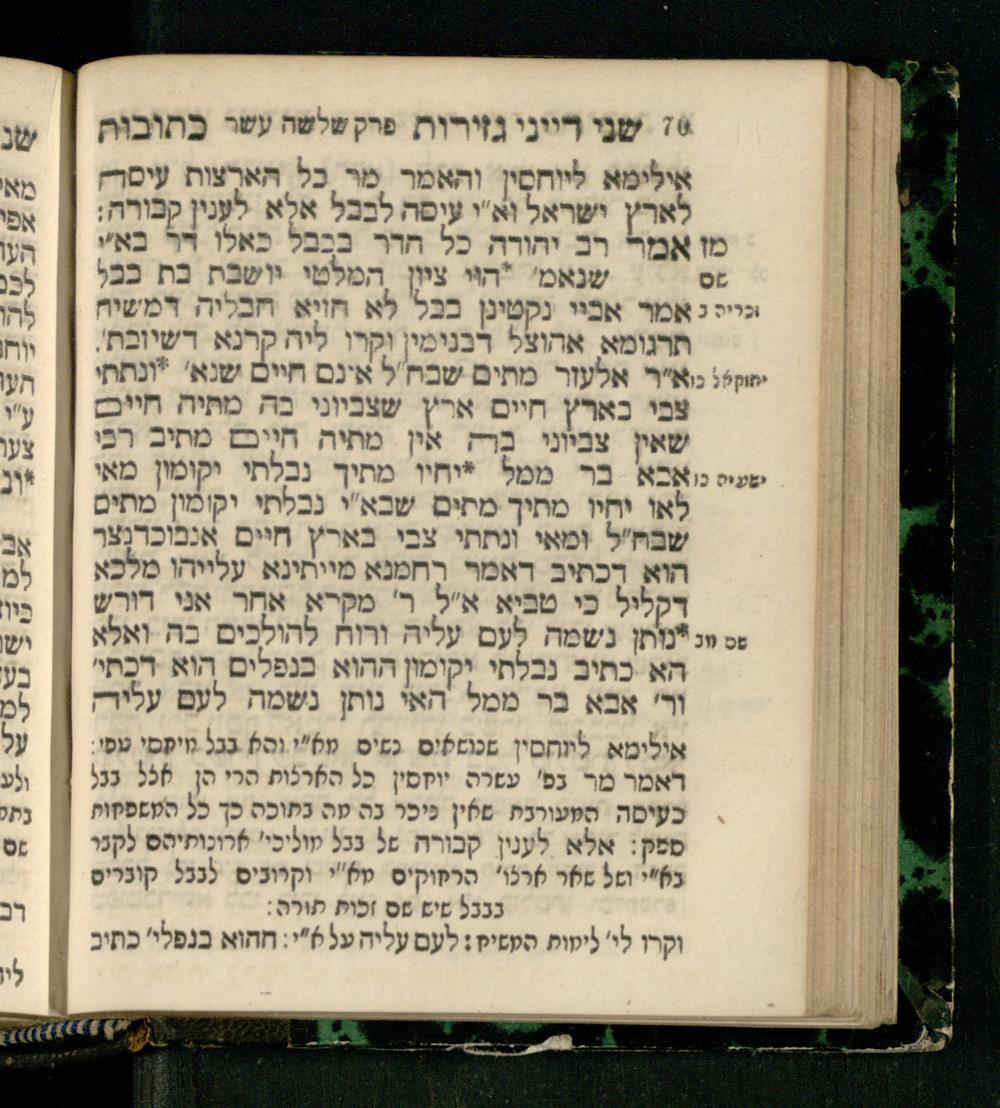 70 שני דייני גזירות פרק שלשה עשר כתובות
אילימא ליוחסין והאמר מר כל הארצות עיסה
לארץ ישראל וא"י עיסה לבבל אלא לענין קבורה:
מז אמר רב יהודה כל הדר בבבל כאלו דר בא"י
שם שנאמ' *הוי ציון המלטי יושבת בת בבל
זכריה ב אמר אביי נקטינן בבל לא חויא חבליה דמשיח
תרגומא אהוצל דבנימין וקרו ליה קרנא דשיזבת'.
יחזקאל כו א"ר אלעזר מתים שבח"ל אינם חיים שנא' *ונתתי
צבי בארץ חיים ארץ שצביוני בה מתיה חיים
שאין צביוני בה אין מתיה חיים מתיב רבי
ישעיה כו אבא בר ממל *יחיו מתיך נבלתי יקומון מאי
לאו יחיו מתיך מתים שבא"י נבלתי יקומון מתים
שבח"ל ומאי ונתתי צבי בארץ חיים אנבוכדנצר
הוא דכתיב דאמר רחמנא מייתינא עלייהו מלכא
דקליל כי טביא א"ל ר' מקרא אחר אני דורש
שם מב *נותן נשמה לעם עליה ורוח להולכים בה ואלא
הא כתיב נבלתי יקומון ההוא בנפלים הוא דכתי'
ור' אבא בר ממל האי נותן נשמה לעם עליה
אילימא ליוחסין שנושאים נשים מא"י והא בבל מיקסי טפי:
דאמר מר בפ' עשרה יוחסין כל הארצות הרי הן אצל בבל
כעיסה המעורבת שאין ניכר בה מה בתוכה כך כל המשפחות
ספק: אלא לענין קבורה של בבל מוליכי' ארונותיהם לקבר
בא"י ושל שאר ארצו' הרחוקים מא"י וקרובים לבבל קוברים
בבבל שיש שם זכות תורה:
וקרו לי' לימות המשיח: לעם עליה על א"י: ההוא בנפלי' כתיב